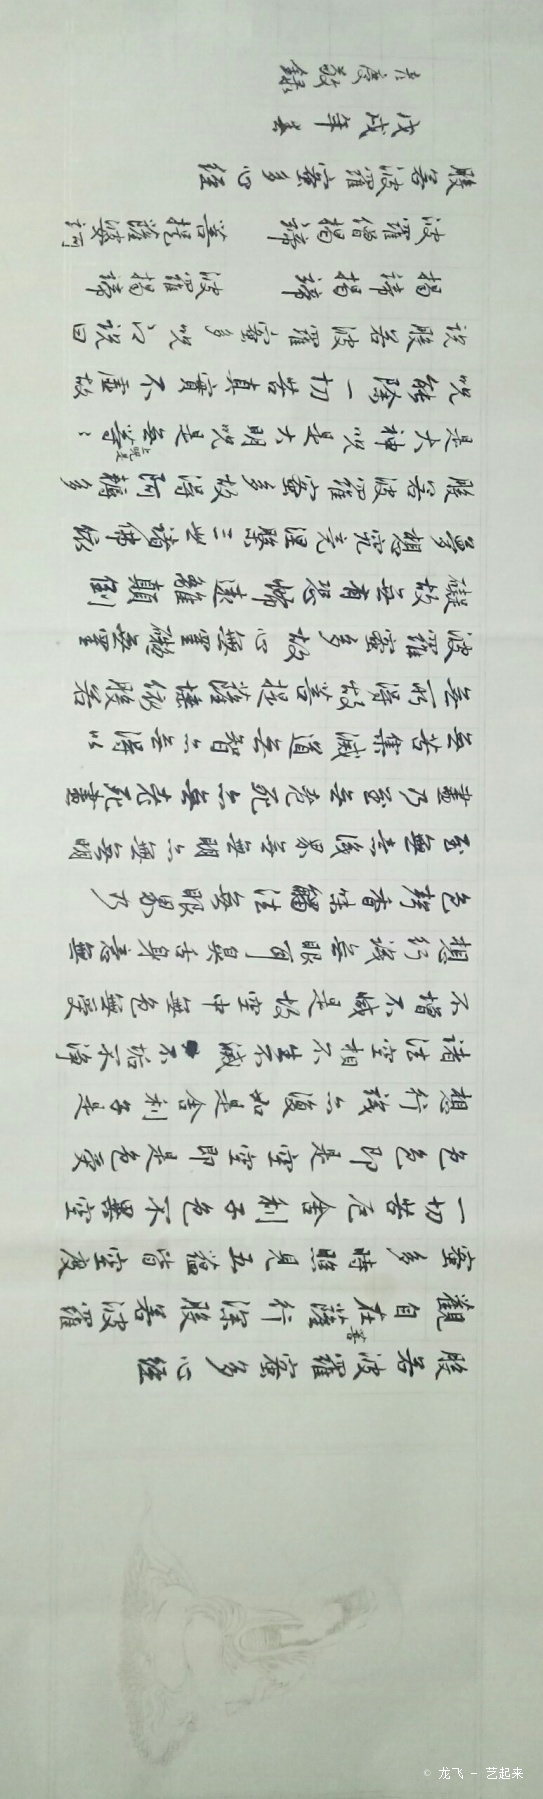 般若波羅蜜多心经
觀自在菩薩行深般若波羅
蜜多時照見五蘊皆空度
一切苦厄舍利子色不異空
色色即是空空即是色受
想行識亦復如是舍利子是
諸法空相不生不滅不垢不淨
不增不減是故空中無色無受
想行識無眼耳鼻舌身意無
色聲香味觸法無眼界乃
至無意識界無無明亦無無明
盡乃至無老死亦無老死盡
無苦集滅道無智亦無得以
無所得故菩提薩埵依般若
波羅蜜多故心無罣礙無罣
礙故無有恐怖遠離顛倒
夢想究竟涅槃三世諸佛依
般若波羅蜜多故得阿耨多
是大神咒是大明咒是無上咒是無等々
咒能除一切苦真實不虛故
说般若波羅蜜多咒即说曰
揭諦揭諦 波羅揭諦
波羅僧揭諦 菩提薩婆訶
般若波羅蜜多心经
戊戌年春
敬錄
© 龙飞 - 艺起来